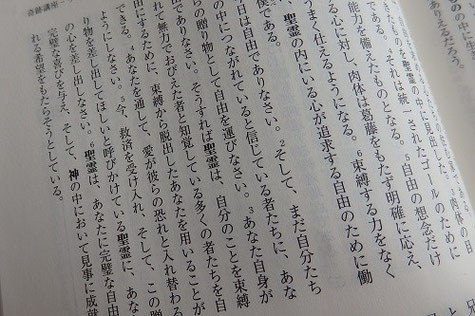 奇跡講座
中に見出した。
肉体の目
きたものは聖霊
である。⁴それは統一されたゴールのために
能力を備えたものとなる。⁵自由の想念だけ
る心に対し、肉体は葛藤をもたず明確に応え、
うまく仕えるようになる。⁶束縛する力をなく
聖霊の内にいる心が追求する自由のために働
僕である。
日は自由でありなさい。²そして、まだ自分たち
の中につながれていると信じている者たちに、あな
らの贈り物として自由を運びなさい。³あなた自身が
でありなさい。そうすれば聖霊は、自分のことを束縛
れて無力でおびえた者と知覚している多くの者たちを自
にするために、束縛から脱出したあなたを用いることが
できる。⁴あなたを通して、愛が彼らの恐れと入れ替わる
ようにしなさい。⁵今、救済を受け入れ、そして、この贈
り物を差し出してほしいと呼びかけている聖霊に、あな
の心を差し出しなさい。⁶聖霊は、あなたに完璧な自由
完璧な喜びを与え、そして、神の中において見事に成就
れる希望をもたらそうとしている。